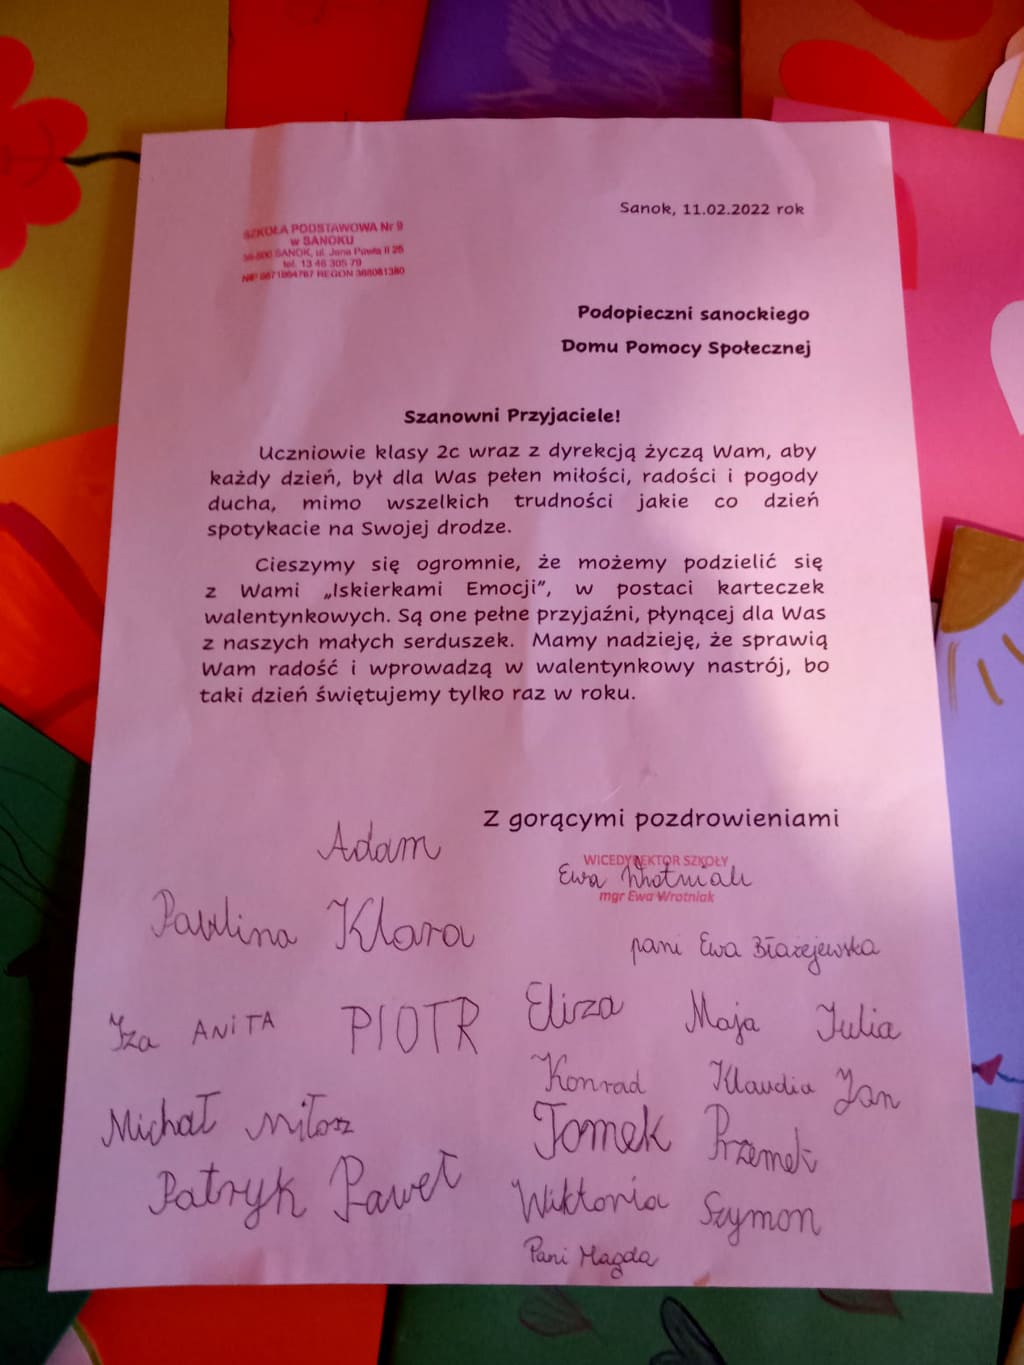 Sanok, 11.02.2022 rok
SZKOŁA PODSTAWOWA Nr 9
w SANOKU
38-500 SANOK, ul. Jana Pawła II 25
tel. 13 46 305 79
Podopieczni sanockiego
Domu Pomocy Społecznej
Szanowni Przyjaciele!
Uczniowie klasy 2c wraz z dyrekcją życzą Wam, aby
każdy dzień, był dla Was pełen miłości, radości i pogody
ducha, mimo wszelkich trudności jakie co dzień
spotykacie na Swojej drodze.
Cieszymy się ogromnie, że możemy podzielić się
z Wami „Iskierkami Emocji”, w postaci karteczek
walentynkowych. Są one pełne przyjaźni, płynącej dla Was
z naszych małych serduszek. Mamy nadzieję, że sprawią
Wam radość i wprowadzą w walentynkowy nastrój, bo
taki dzień świętujemy tylko raz w roku.
Z gorącymi pozdrowieniami
WICEDYREKTOR SZKOŁY
Ewa Wrotniak
mgr Ewa Wrotniak
Adam
Paulina Klara
pani Ewa Błażejewska
Iza ANITA PIOTR Eliza Maja Julia
Konrad Klaudia Jan
Michał Miłosz Tomek Przemek
Patryk Paweł Wiktoria Szymon
Pani Magda